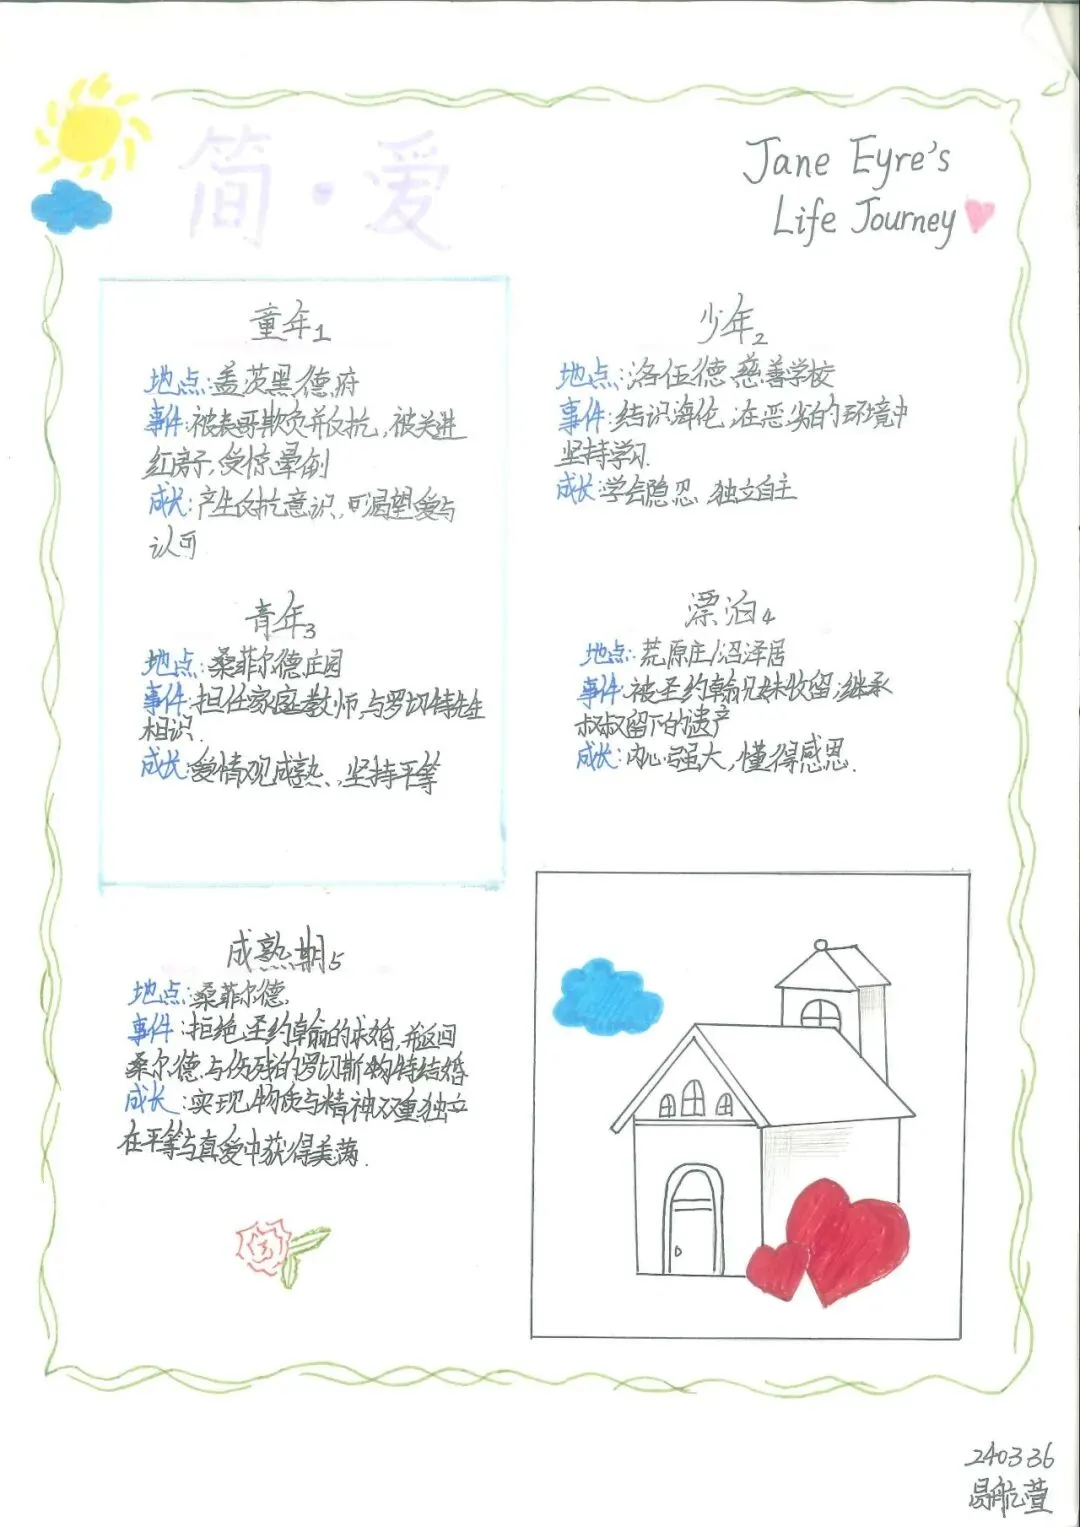 简·爱
Jane Eyre's
Life Journey
童年1
地点:盖茨黑德府
事件:被表哥欺负并反抗,被关进
红房子,受惊晕倒
成长:产生反抗意识,可渴望爱与
认可
少年2
地点:洛伍德慈善学校
事件:结识海伦,在恶劣的环境中
坚持学习.
成长:学会隐忍 独立自主
青年3
地点:桑菲尔德庄园
事件:担任家庭教师,与罗切特先生
相识.
成长:爱情观成熟,坚持平等
漂泊4
地点:荒原庄/沼泽居
事件:被圣约翰兄妹收留;继承
叔叔留下的遗产
成长:内心强大,懂得感恩.
成熟期5
地点:桑菲尔德.
事件:拒绝圣约翰的求婚,并返回
桑尔德与伤残的罗切斯特结婚
成长:实现物质与精神双重独立
在平等与真爱中获得美满.
240336
航萱